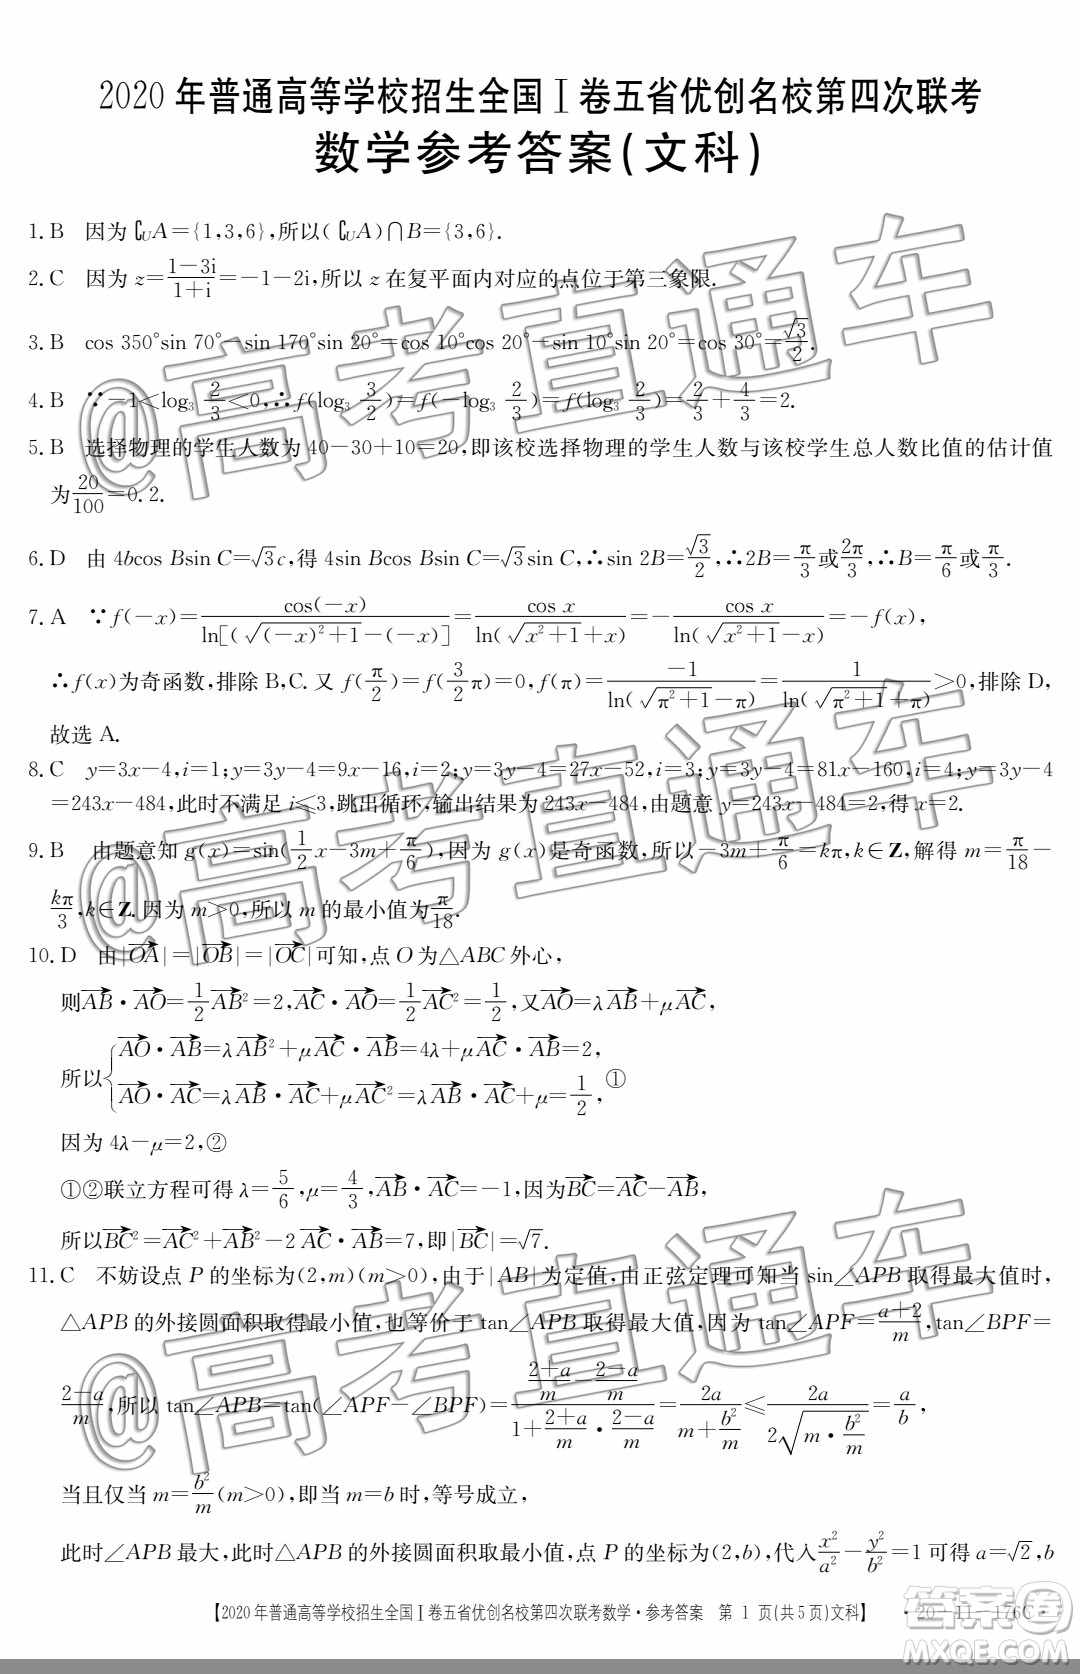 2020 年普通高等学校招生全国Ⅰ卷五省优创名校第四次联考
数学参考答案(文科)
1. B 因为∁UA={1,3,6},所以(∁UA)∩B={3,6}.
2. C 因为 z=(1-3i)/(1+i)=-1-2i,所以 z 在复平面内对应的点位于第三象限.
3. B cos 350°sin 70°-sin 170°sin 20°=cos 10°cos 20°-sin 10°sin 20°=cos 30°=√3/2.
4. B ∵-1<log₃ 2/3<0,∴f(log₃ 3/2)=f(-log₃ 2/3)=f(log₃ 2/3)=2/3+4/3=2.
5. B 选择物理的学生人数为 40-30+10=20,即该校选择物理的学生人数与该校学生总人数比值的估计值
为20/100=0.2.
6. D 由 4bcos Bsin C=√3c,得 4sin Bcos Bsin C=√3sin C,∴sin 2B=√3/2,∴2B=π/3或2π/3,∴B=π/6或π/3.
7. A ∵f(-x)=cos(-x)/ln[(√((-x)²+1)-(-x)]=cos x/ln(√(x²+1)+x)=-cos x/ln(√(x²+1)-x)=-f(x),
∴f(x)为奇函数,排除 B,C. 又 f(π/2)=f(3/2π)=0,f(π)=-1/ln(√(π²+1)-π)=1/ln(√(π²+1)+π)>0,排除 D,
故选 A.
8. C y=3x-4,i=1;y=3y-4=9x-16,i=2;y=3y-4=27x-52,i=3;y=3y-4=81x-160,i=4;y=3y-4
=243x-484,此时不满足 i≤3,跳出循环,输出结果为 243x-484,由题意 y=243x-484=2,得 x=2.
9. B 由题意知 g(x)=sin(1/2x-3m+π/6),因为 g(x)是奇函数,所以-3m+π/6=kπ,k∈Z,解得 m=π/18-
kπ/3,k∈Z.因为 m>0,所以 m 的最小值为π/18.
10. D 由|OA→|=|OB→|=|OC→|可知,点 O 为△ABC 外心,
则AB→·AO→=1/2AB→²=2,AC→·AO→=1/2AC→²=1/2,又AO→=λAB→+μAC→,
所以{AO→·AB→=λAB→²+μAC→·AB→=4λ+μAC→·AB→=2,
AO→·AC→=λAB→·AC→+μAC→²=λAB→·AC→+μ=1/2, ①
因为 4λ-μ=2,②
①②联立方程可得 λ=5/6,μ=4/3,AB→·AC→=-1,因为BC→=AC→-AB→,
所以BC→²=AC→²+AB→²-2AC→·AB→=7,即|BC→|=√7.
11. C 不妨设点 P 的坐标为(2,m)(m>0),由于|AB|为定值,由正弦定理可知当 sin∠APB 取得最大值时,
△APB 的外接圆面积取得最小值,也等价于 tan∠APB 取得最大值,因为 tan∠APF=(a+2)/m,tan∠BPF=
(2-a)/m,所以 tan∠APB=tan(∠APF-∠BPF)=((2+a)/m-(2-a)/m)/(1+(2+a)/m·(2-a)/m)=2a/(m+b²/m)≤2a/(2√(m·b²/m))=a/b,
当且仅当 m=b²/m(m>0),即当 m=b 时,等号成立,
此时∠APB 最大,此时△APB 的外接圆面积取最小值,点 P 的坐标为(2,b),代入x²/a²-y²/b²=1 可得 a=√2,b
【2020 年普通高等学校招生全国Ⅰ卷五省优创名校第四次联考数学·参考答案 第 1 页(共 5 页)文科】 ·20-11-176C·
@高考直通车
@高考直通车
@高考直通车
作业帮
MXQE.COM